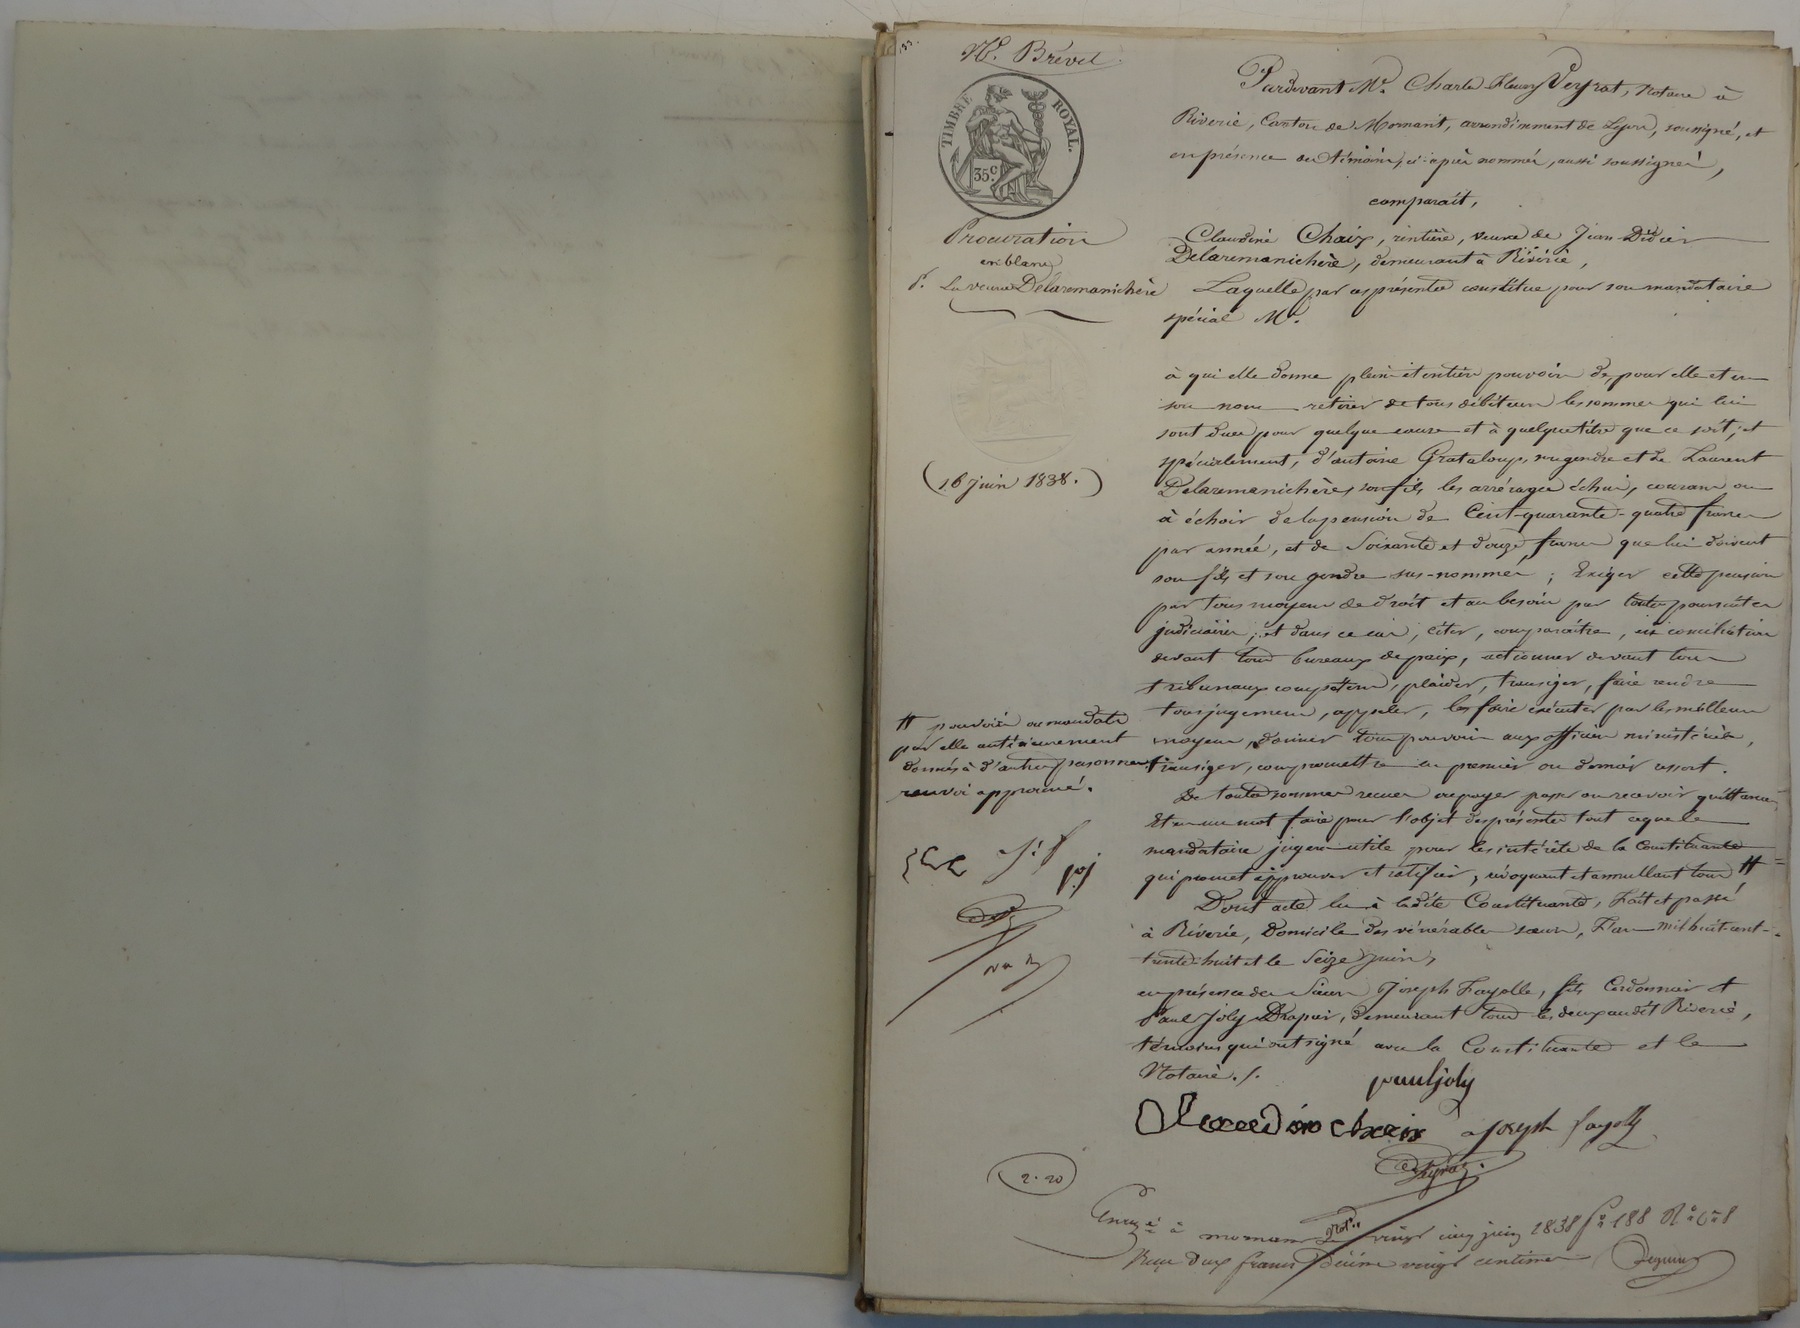 133.
Nº. Brevet
TIMBRE ROYAL.
35 c.
Procuration
en blanc
p. La veuve Delaremanichère
(16 juin 1838.)
Pardevant Me. Charle Fleury Veyrat, Notaire à
Riverie, Canton de Mornant, arrondissement de Lyon, soussigné, et
en présence des témoins, ci-après nommés, aussi soussignés,
comparait,
Claudine Chaix, rentière, veuve de Jean Didier
Delaremanichère, demeurant à Riverie,
Laquelle par ces présentes constitue pour son mandataire
spécial M.
à qui elle donne plein et entier pouvoir de, pour elle et en
son nom retirer de tous débiteurs les sommes qui lui
sont dues pour quelque cause et à quelque titre que ce soit, et
spécialement, d'antoine Grataloup, son gendre et de Laurent
Delaremanichère, son fils les arrérages échus, courans ou
à échoir de la pension de Cent-quarante-quatre francs
par année, et de Soixante et douze francs que lui doivent
son fils et son gendre sus-nommés ; Exiger cette pension
par tous moyens de droit et au besoin par toutes poursuites
judiciaires ; et dans ce cas, citer, comparaître, en conciliation
devant tous bureaux de paix, actionner devant tous
tribunaux compétens, plaider, transiger, faire rendre
tous jugemens, appeler, les faire exécuter par les meilleurs
moyens, donner tous pouvoirs aux officiers ministériels,
transiger, compromettre en premier ou dernier ressort.
De toutes sommes recues ou payer passer ou recevoir quittances
Et en un mot faire pour l'objet des présentes tout ce que le
mandataire jugera utile pour les intérêts de la Constituante
qui promet approuver et ratifier, révoquant et annullant tous #
# pouvoirs ou mandats
par elle antérieurement
donnés à d'autres personnes.
renvoi approuvé.
Dont acte lu à ladite Constituante, Fait et passé
à Riverie, Domicile des vénérables sœurs, L'an mil huit cent-
trente-huit et le Seize juin,
en présence des Sieurs Joseph Fayolle, fils Cordonnier et
Paul Joly Drapier, demeurant tous les deux audit Riverie,
témoins qui ont signé avec la Constituante et le
Notaire ./.
paul joly
Claudine chaix joseph fayolle
Veyrat
Not.re
2. 20
Enreg.é à mornant le vingt cinq juin 1838 fo 188 Ro
Reçu deux francs décime vingt centimes